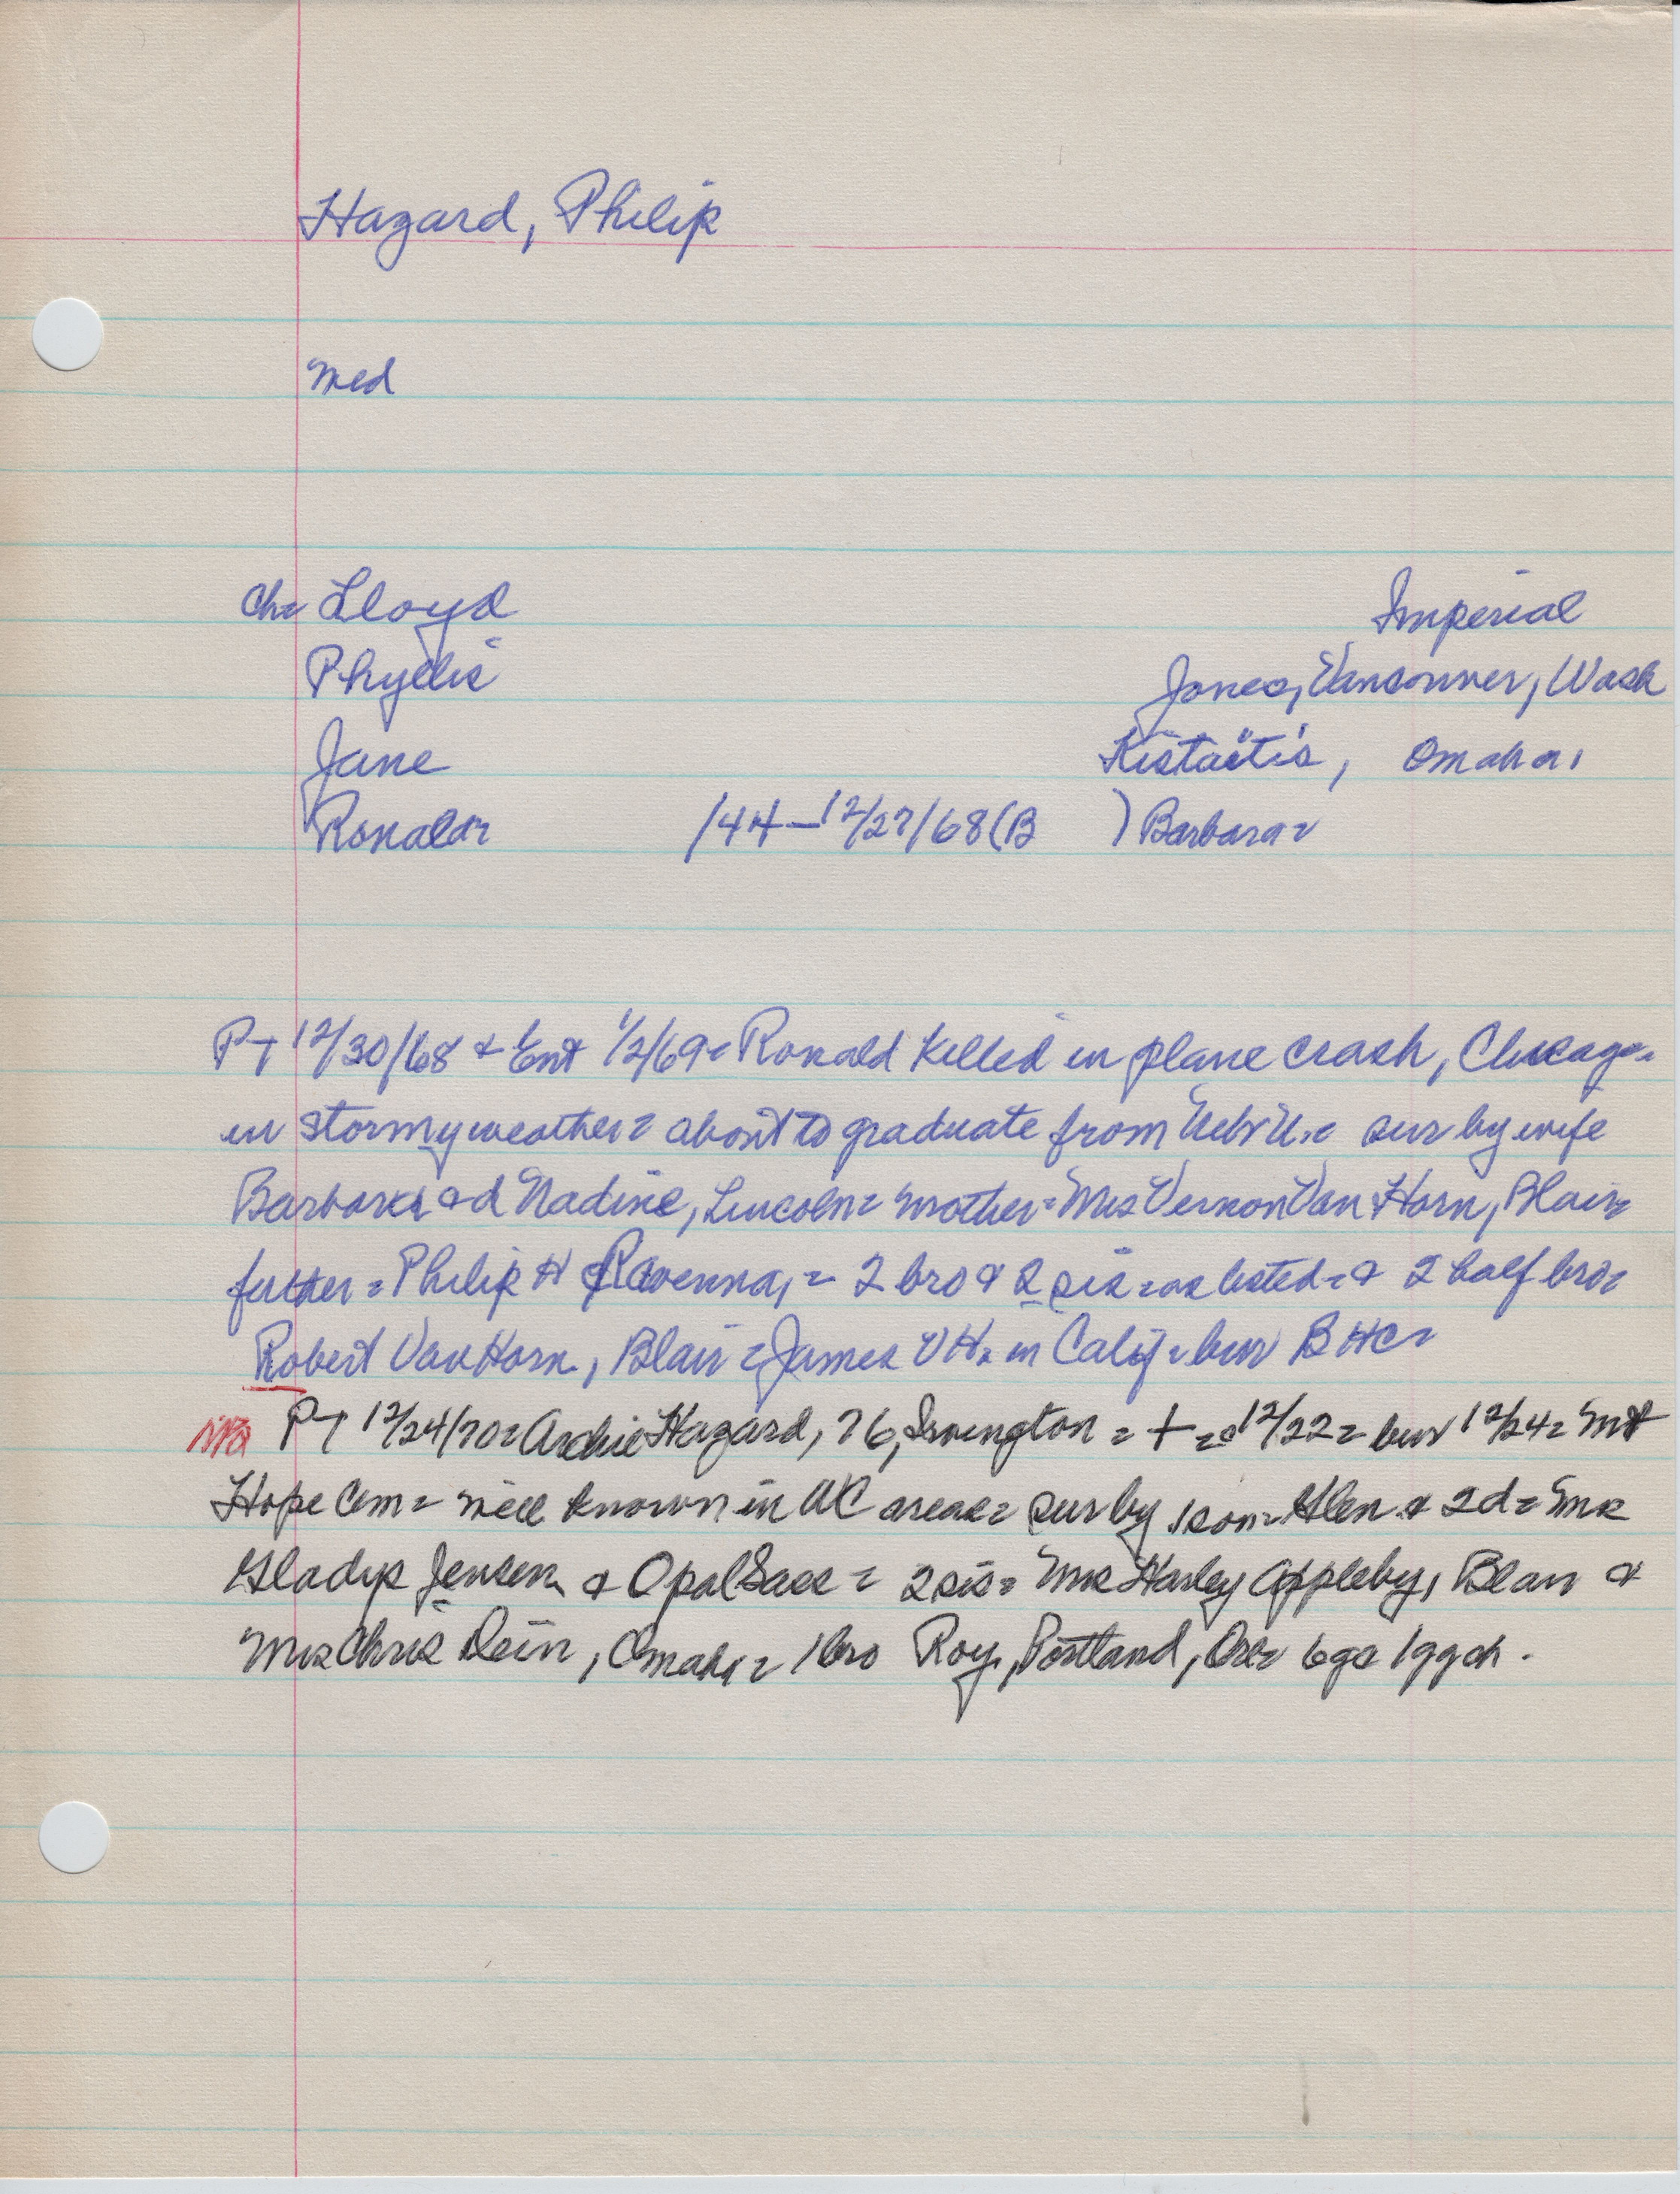 Hazard, Philip
med
Ch= Lloyd Imperial
Phyllis Jones, Vancouver, Wash
Jane Kistaitis, Omaha,
Ronald= /44-12/27/68(B ) Barbara=
PT 12/30/68 & Ent 1/2/69= Ronald killed in plane crash, Chicago=
in stormy weather= about to graduate from Neb U.= sur by wife
Barbara & d Nadine, Lincoln= mother= Mrs Vernon Van Horn, Blair=
father= Philip H Ravenna,= 2 bro & 2 sis =as listed= & 2 half bro=
Robert Van Horn, Blair= James VH. in Calif= bur BHC=
PT 12/24/70= Archie Hazard, 76, Irvington = + = 12/22= bur 12/24= Mt
Hope Cem= well known in WC area= sur by 1 son= Glen & 2d= Mrs
Gladys Jensen & Opal = 2 sis= Mrs Harley Appleby, Blair &
Mrs Chris Dein, Omaha= 1 bro Roy, Portland, Ore= 6gc 1ggch.